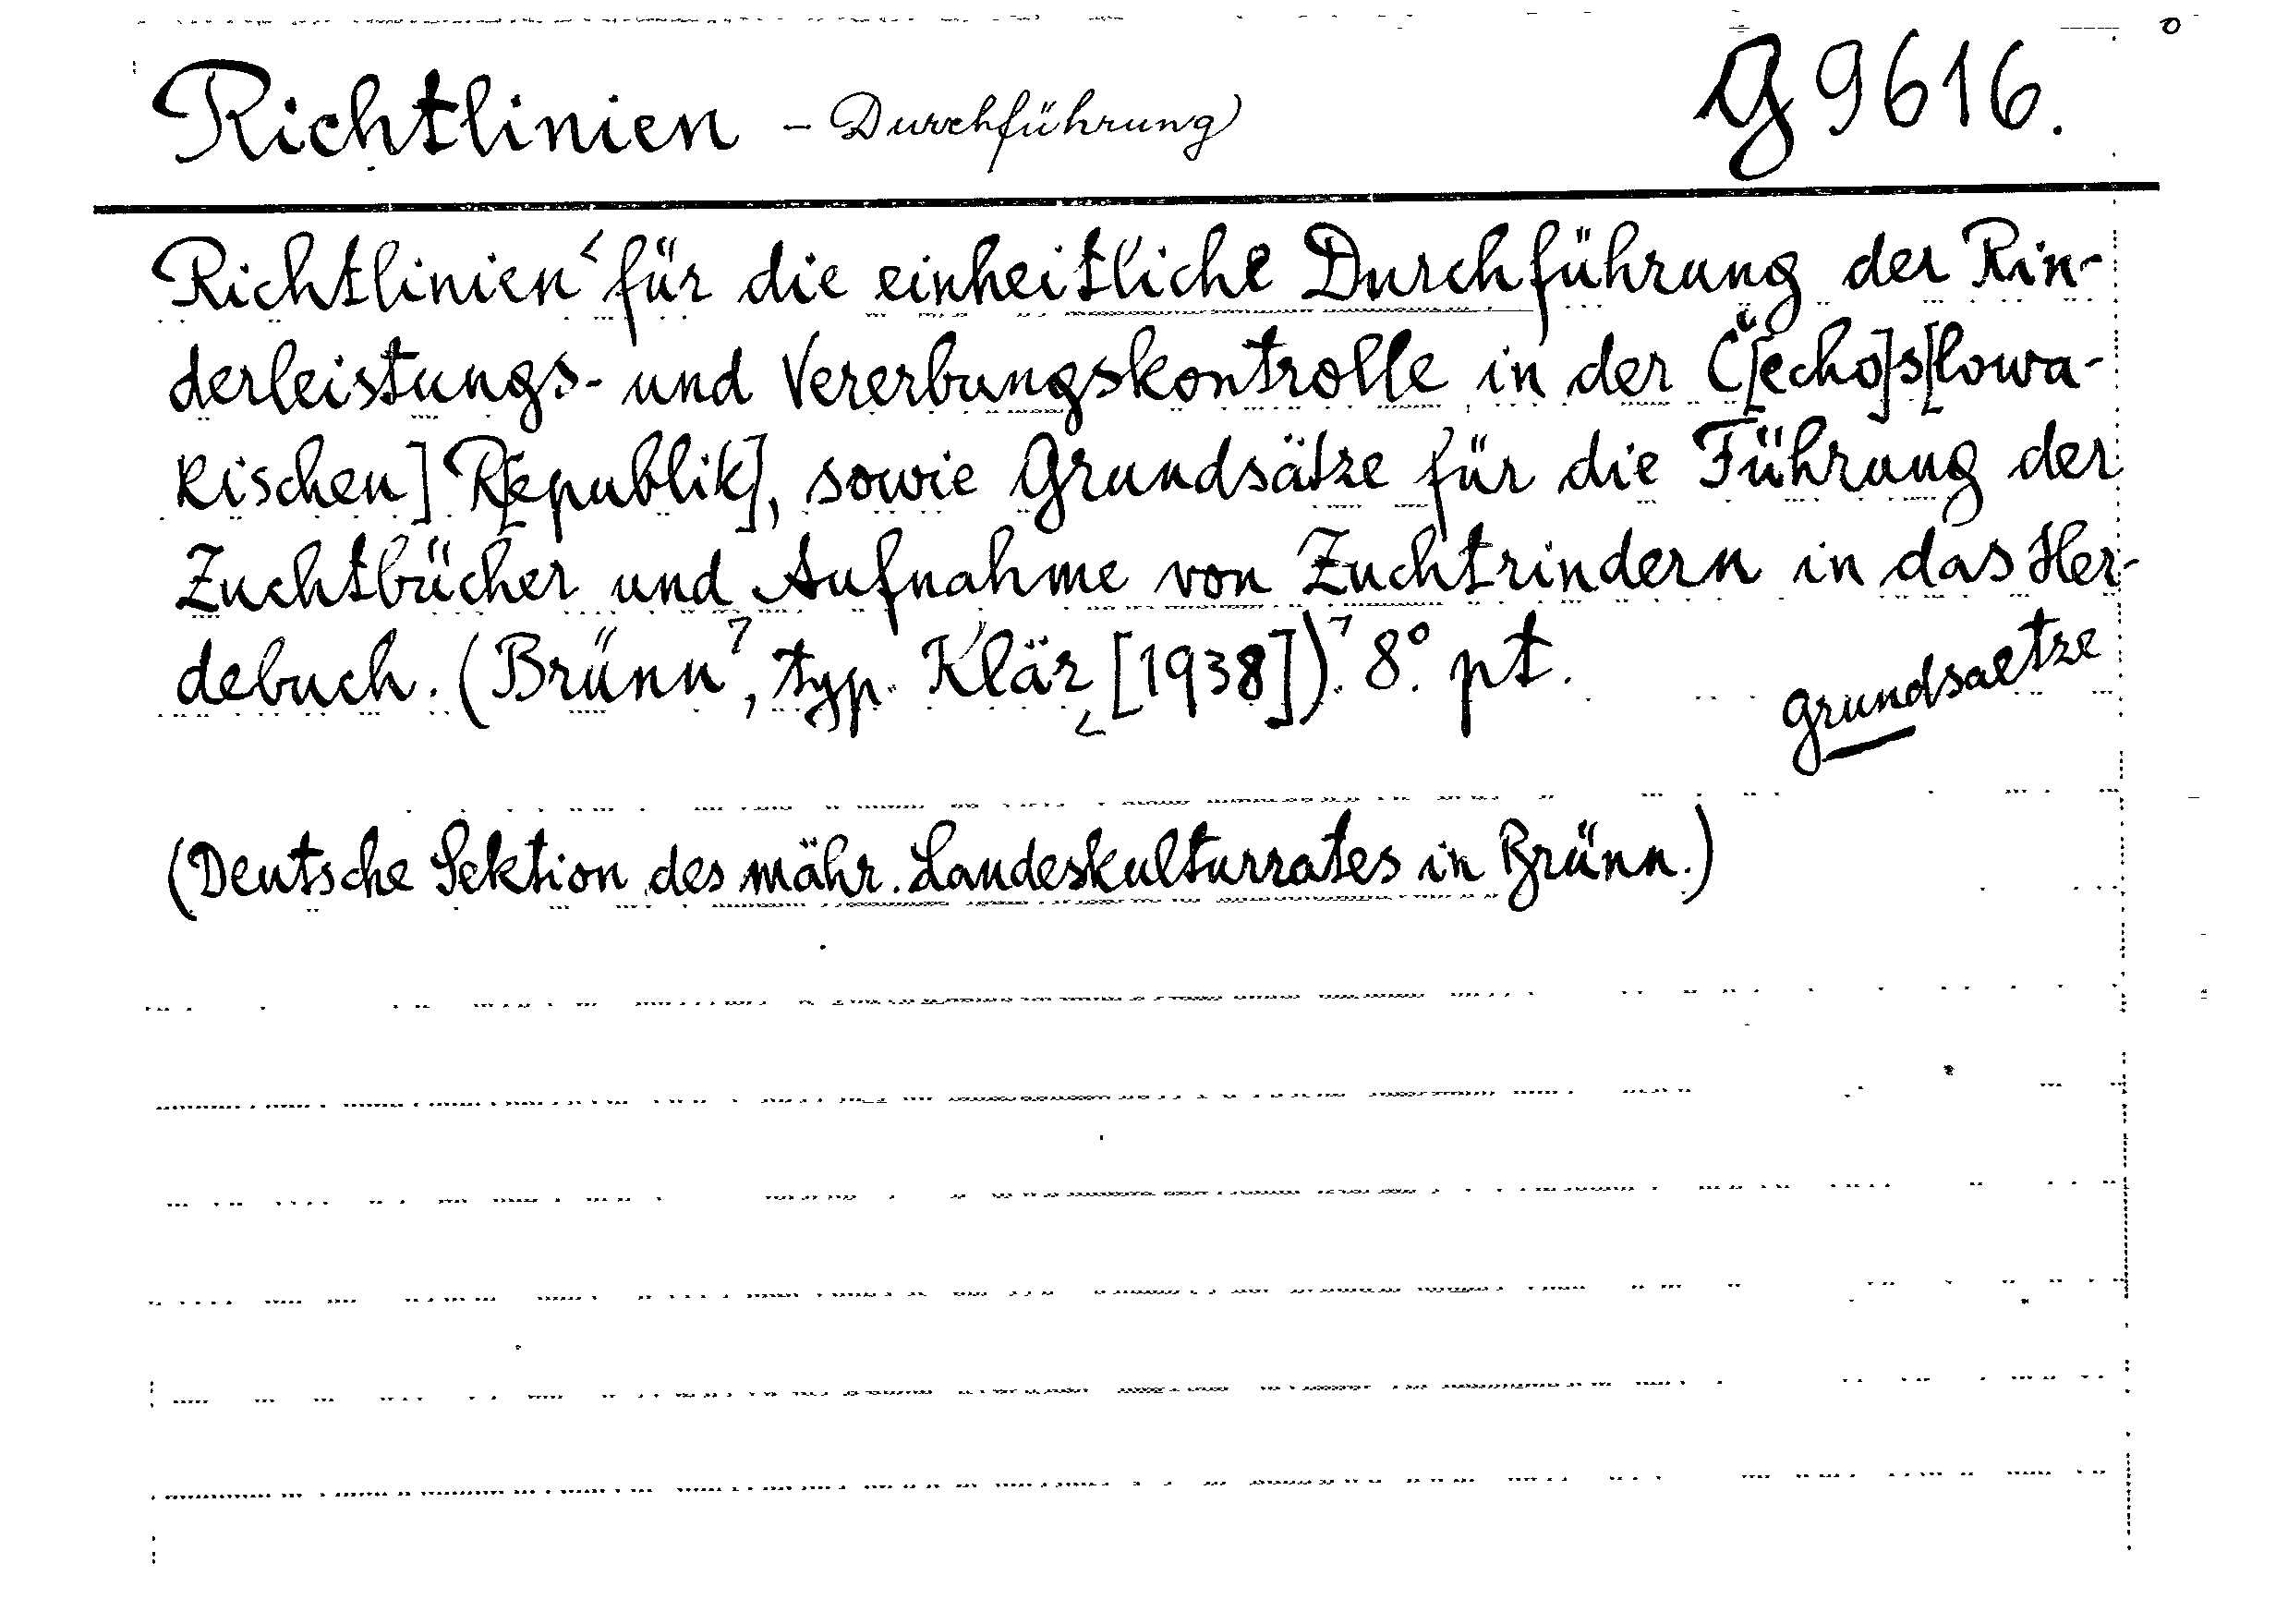 Richtlinien - Durchführung G 9616.
Richtlinien für die einheitliche Durchführung der Rin-
derleistungs- und Vererbungskontrolle in der Č[echo]s[lowa-
kischen] R[epublik], sowie Grundsätze für die Führung der
Zuchtbücher und Aufnahme von Zuchtrindern in das Her-
debuch. (Brünn, typ. Klär [1938]). 8°. pt.
Grundsaetze
(Deutsche Sektion des mähr. Landeskulturrates in Brünn.)